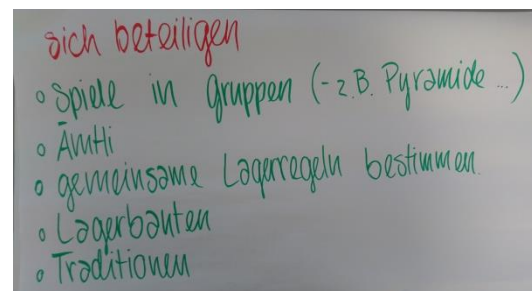 sich beteiligen
° Spiele in Gruppen (- z.B. Pyramide ...)
° Ämtli
° gemeinsame Lagerregeln bestimmen.
° Lagerbauten
° Traditionen